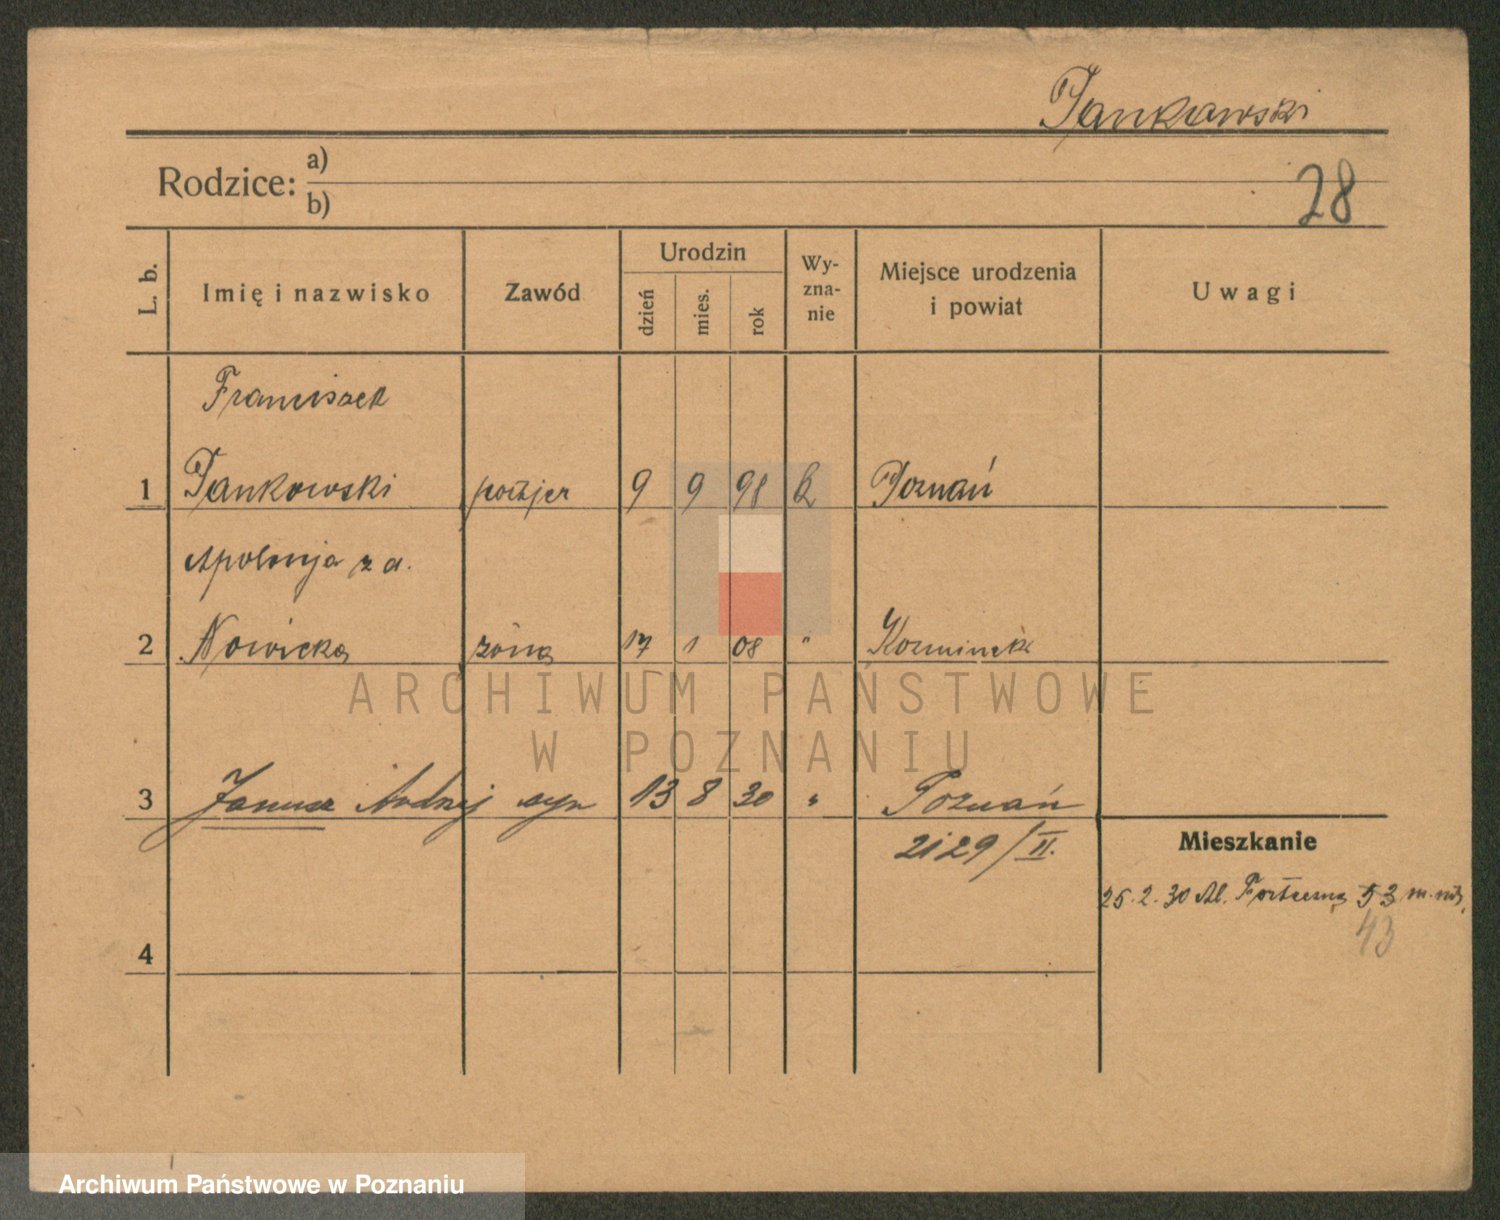 Pankowski
Rodzice: a)
b)
28
L. b.
Imię i nazwisko
Zawód
Urodzin
dzień
mies.
rok
Wy-
zna-
nie
Miejsce urodzenia
i powiat
Uwagi
Franciszek
1 Pankowski portjer 9 9 98 k Poznań
Apolonja z d.
2 Nowicka żona 17 1 08 " Kozminek
3 Janusz Andrzej syn 13 8 30 " Poznań
2129/II.
Mieszkanie
25.2.30 53
43
4
ARCHIWUM PAŃSTWOWE
W POZNANIU
Archiwum Państwowe w Poznaniu